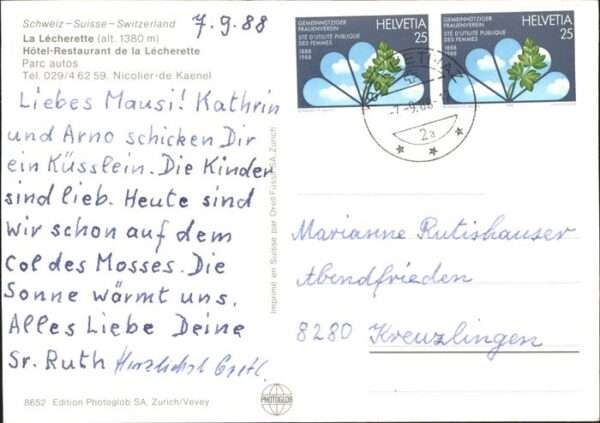 Schweiz – Suisse – Switzerland
La Lécherette (alt. 1380 m)
Hôtel-Restaurant de la Lécherette
Parc autos
Tél. 029/4 62 59. Nicolier-de Kaenel
7.9.88
Liebes Mausi! Kathrin
und Arno schicken Dir
ein Küsslein. Die Kinder
sind lieb. Heute sind
wir schon auf dem
Col des Mosses. Die
Sonne wärmt uns.
Alles Liebe Deine
Sr. Ruth Herzlichst Gretl.
8652 Edition Photoglob SA, Zurich/Vevey
Imprimé en Suisse par Orell Füssli SA, Zurich
PHOTOGLOB
GEMEINNÜTZIGER
FRAUENVEREIN
STÉ D'UTILITÉ PUBLIQUE
DES FEMMES
1888
1988
HELVETIA
25
GEMEINNÜTZIGER
FRAUENVEREIN
STÉ D'UTILITÉ PUBLIQUE
DES FEMMES
1888
1988
HELVETIA
25
2a
Marianne Rutishauser
Abendfrieden
8280 Kreuzlingen